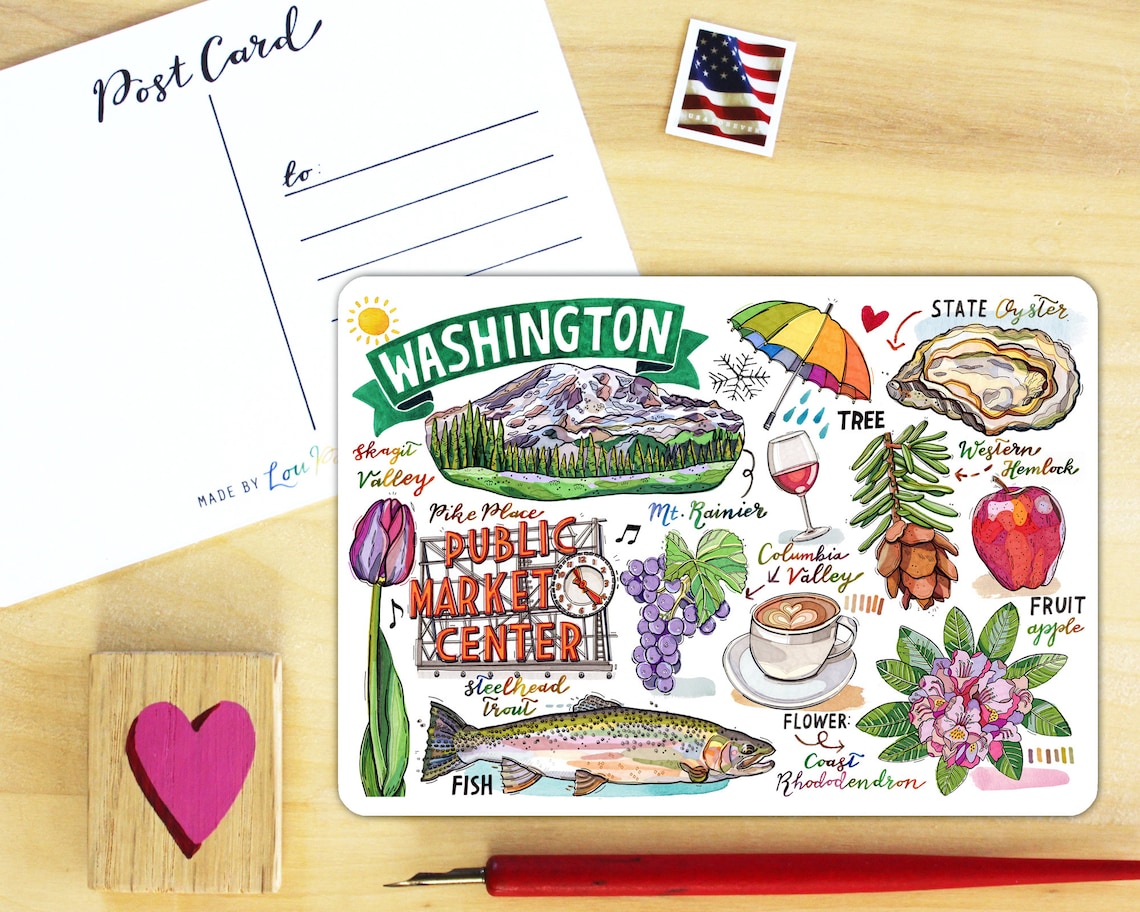 Post Card
to:
MADE BY Lou
USA FOREVER
WASHINGTON
STATE Oyster
TREE
Western
Hemlock
Skagit
Valley
Pike Place
Mt. Rainier
PUBLIC
MARKET
CENTER
Columbia
Valley
FRUIT
apple
Steelhead
Trout
FISH
FLOWER:
Coast
Rhododendron